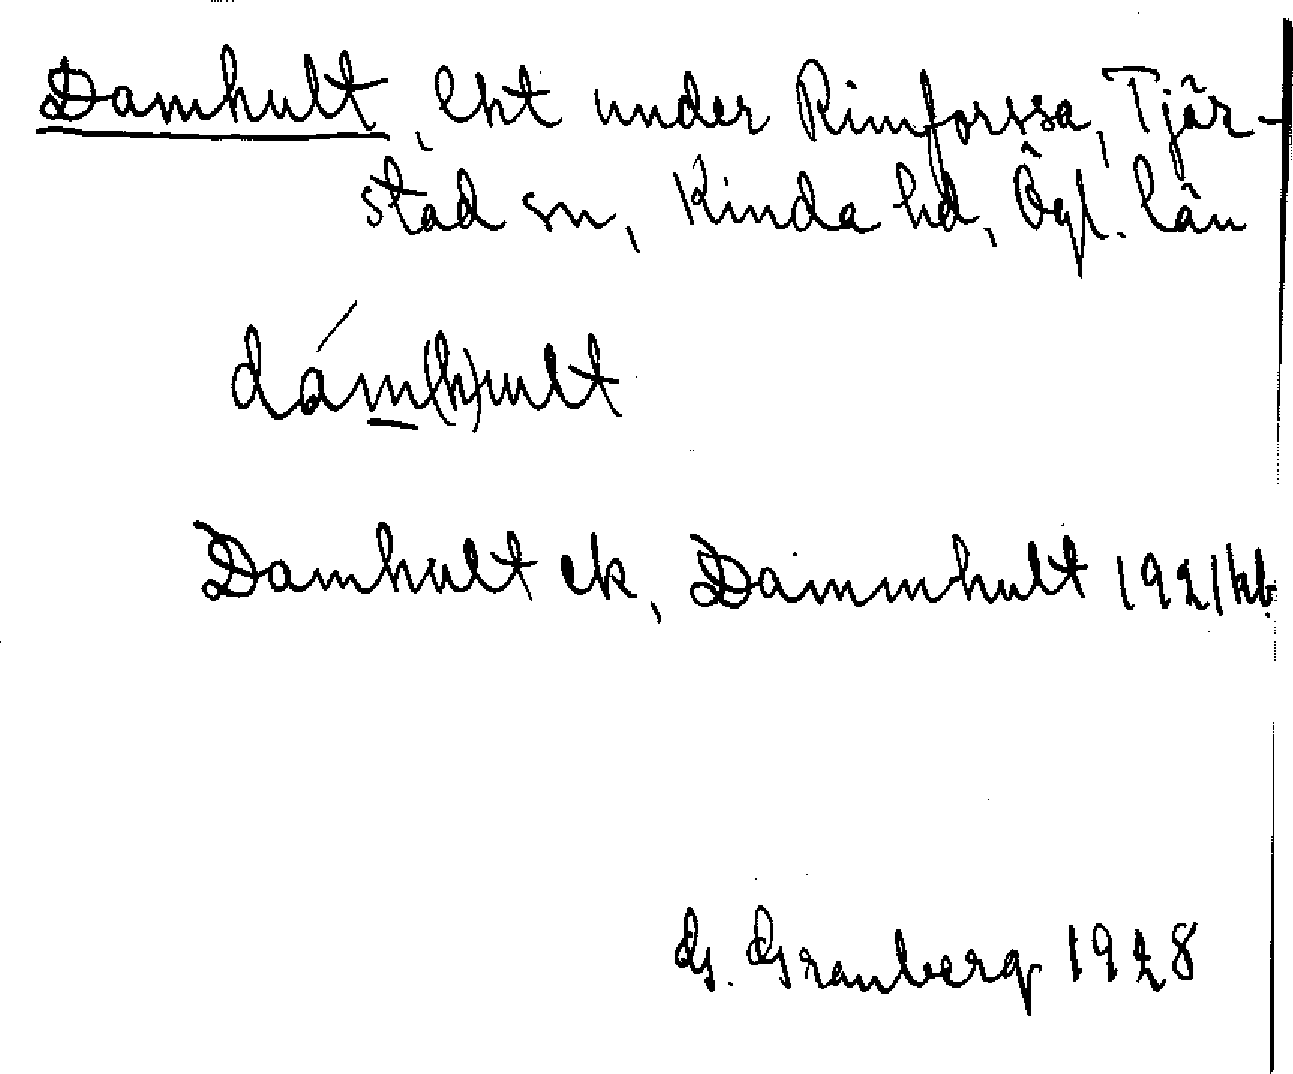 Damhult, lht under Rimforssa, Tjär-
stad sn, Kinda hd, Ögl. län
dám(h)ult
Damhult ek, Dammhult 1921 kb.
G. Granberg 1928